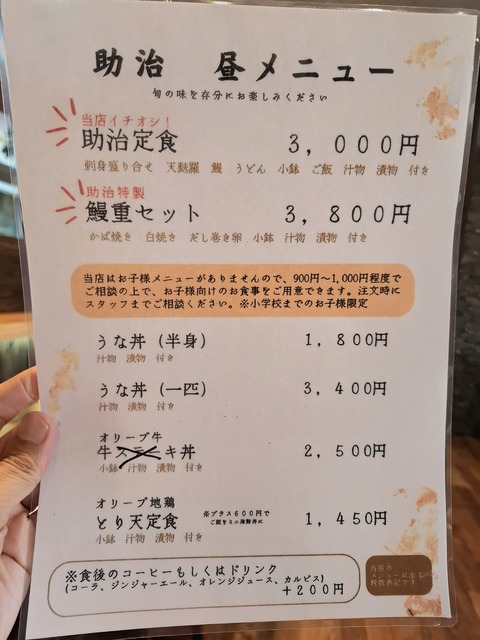 助治 昼メニュー
旬の味を存分にお楽しみください
当店イチオシ!
助治定食 3,000円
刺身盛り合せ 天麩羅 鰻 うどん 小鉢 ご飯 汁物 漬物 付き
助治特製
鰻重セット 3,800円
かば焼き 白焼き だし巻き卵 小鉢 汁物 漬物 付き
当店はお子様メニューがありませんので、900円～1,000円程度で
ご相談の上で、お子様向けのお食事をご用意できます。注文時に
スタッフまでご相談ください。※小学校までのお子様限定
うな丼(半身) 1,800円
汁物 漬物 付き
うな丼(一匹) 3,400円
汁物 漬物 付き
オリーブ牛
牛ステーキ丼 2,500円
小鉢 汁物 漬物 付き
オリーブ地鶏
とり天定食 ※プラス600円で 1,450円
ご飯をミニ海鮮丼に
小鉢 汁物 漬物 付き
※食後のコーヒーもしくはドリンク
(コーラ、ジンジャーエール、オレンジジュース、カルピス)
+200円
当店の
メニューは全て
税込表記です